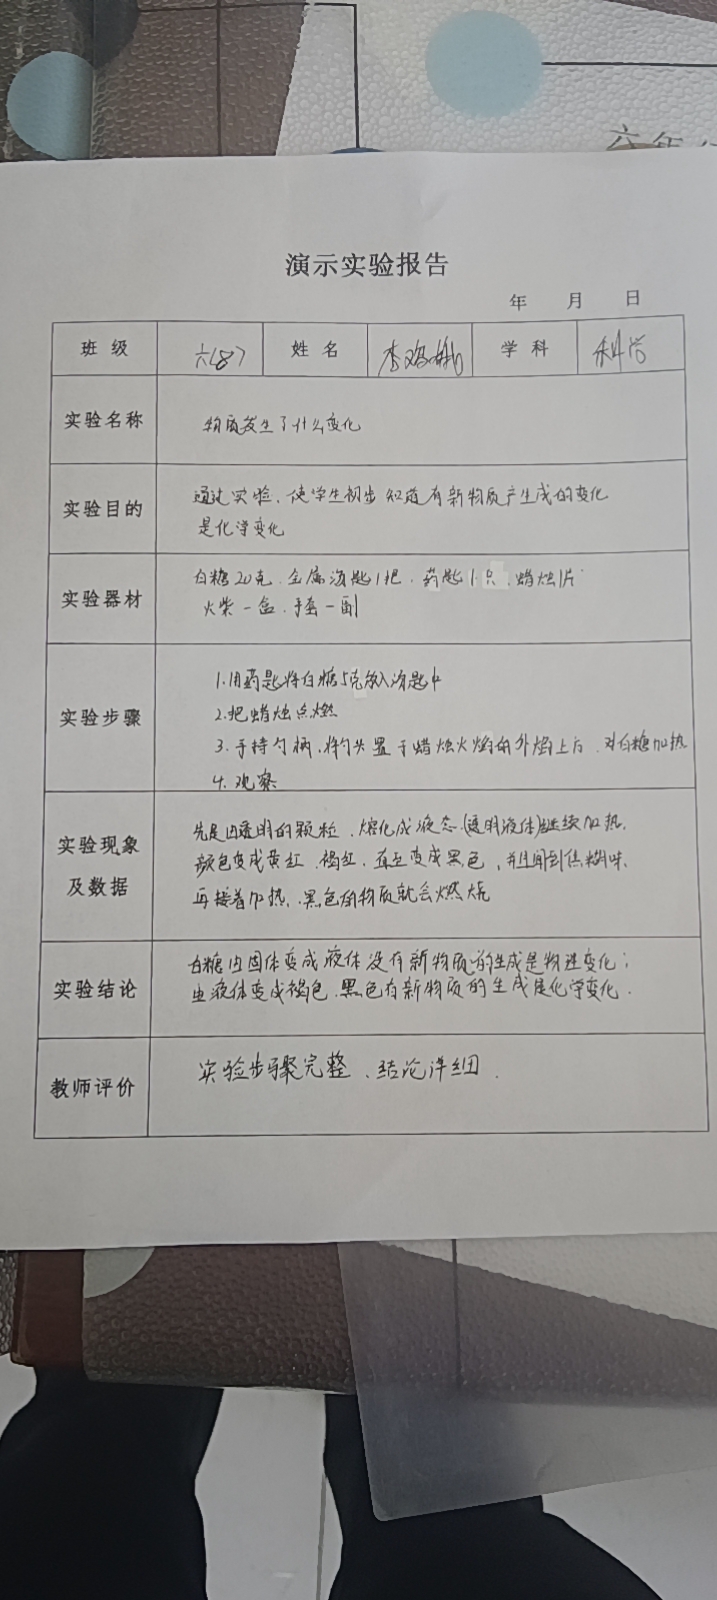 六年
演示实验报告
年 月 日
班级 六(8) 姓名 李 学科 科学
实验名称 物质发生了什么变化
实验目的 通过实验、使学生初步知道有新物质产生成的变化
是化学变化
实验器材 白糖20克、金属汤匙1把、药匙1只、蜡烛1片
火柴一盒、手套一副
实验步骤 1.用药匙将白糖5克放入汤匙中
2.把蜡烛点燃
3.手持勺柄、将勺头置于蜡烛火焰的外焰上方、对白糖加热
4.观察
实验现象及数据 先是由透明的颗粒、熔化成液态(透明液体)继续加热、
颜色变成黄红、褐红、直至变成黑色,并且闻到焦糊味、
再接着加热、黑色的物质就会燃烧
实验结论 白糖由固体变成液体没有新物质的生成是物理变化;
由液体变成褐色、黑色有新物质的生成是化学变化.
教师评价 实验步骤完整、结论详细.